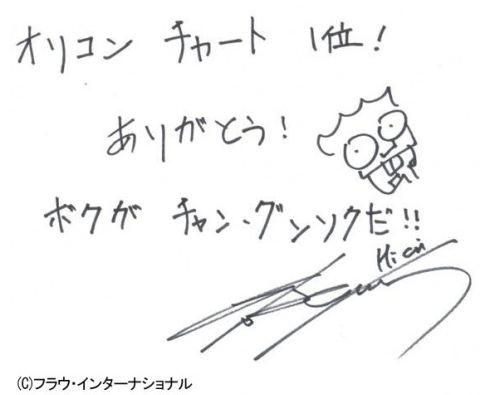 オリコン チャート 1位!
ありがとう!
ボクが チャン・グンソクだ!!
(C)フラウ・インターナショナル